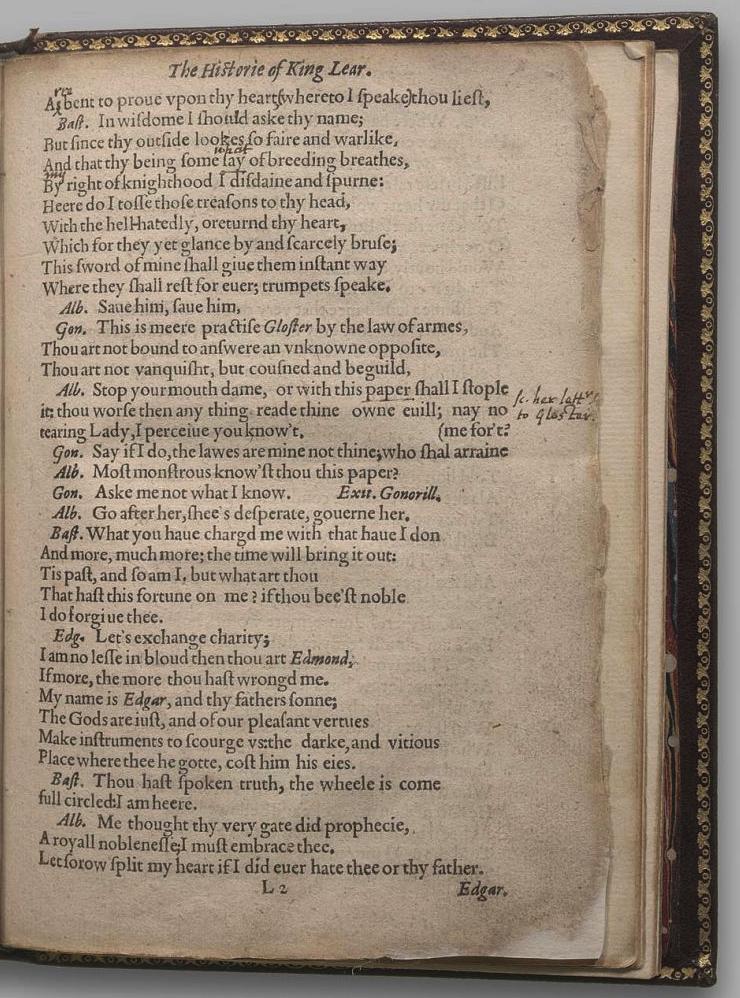 The Historie of King Lear.
As bent to proue vpon thy heart(whereto I speake)thou liest,
Bast. In wisdome I should aske thy name;
But since thy outside lookes so faire and warlike,
what
And that thy being some say of breeding breathes,
my
By right of knighthood I disdaine and spurne:
Heere do I tosse those treasons to thy head,
With the hell-hatedly, oreturnd thy heart,
Which for they yet glance by and scarcely bruse;
This sword of mine shall giue them instant way
Where they shall rest for euer; trumpets speake.
Alb. Saue him, saue him,
Gon. This is meere practise Gloster by the law of armes,
Thou art not bound to answere an vnknowne opposite,
Thou art not vanquisht, but cousned and beguild,
Alb. Stop your mouth dame, or with this paper shall I stople
sc. her lettr
it; thou worse then any thing reade thine owne euill; nay no
to Gloster.
tearing Lady,I perceiue you know't. (me for't?
Gon. Say if I do,the lawes are mine not thine;who shal arraine
Alb. Most monstrous know'st thou this paper?
Gon. Aske me not what I know. Exit. Gonorill.
Alb. Go after her,shee's desperate, gouerne her.
Bast. What you haue chargd me with that haue I don
And more, much more; the time will bring it out:
Tis past, and so am I, but what art thou
That hast this fortune on me ? if thou bee'st noble
I do forgiue thee.
Edg. Let's exchange charity;
I am no lesse in bloud then thou art Edmond,
If more, the more thou hast wrongd me.
My name is Edgar, and thy fathers sonne;
The Gods are iust, and of our pleasant vertues
Make instruments to scourge vs:the darke,and vitious
Place where thee he gotte, cost him his eies.
Bast. Thou hast spoken truth, the wheele is come
full circled:I am heere.
Alb. Me thought thy very gate did prophecie,
A royall noblenesse;I must embrace thee.
Let sorow split my heart if I did euer hate thee or thy father.
L 2 Edgar.